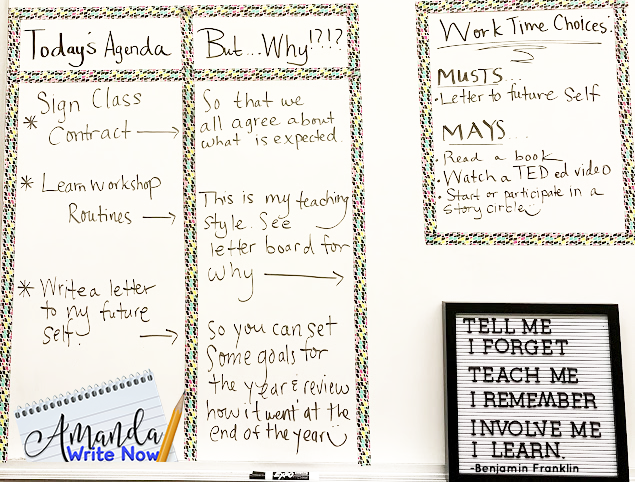 Today's Agenda
* Sign Class
Contract →
* Learn Workshop
Routines →
* Write a letter
to my future
self. →
But...Why!?!?
So that we
all agree about
what is expected.
This is my teaching
style. See
letter board for
why →
So you can set
some goals for
the year & review
how it went at the
end of the year
Work Time Choices:
MUSTS...
• Letter to future self
MAYS...
• Read a book
• Watch a TED ed video
• Start or participate in a
story circle
TELL ME
I FORGET
TEACH ME
I REMEMBER
INVOLVE ME
I LEARN.
-Benjamin Franklin
Amanda
Write Now